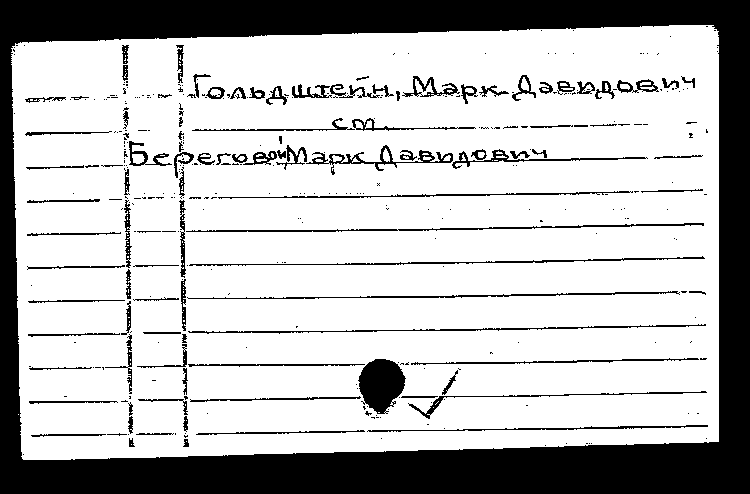 Гольдштейн, Марк Давидович
см.
Береговой Марк Давидович